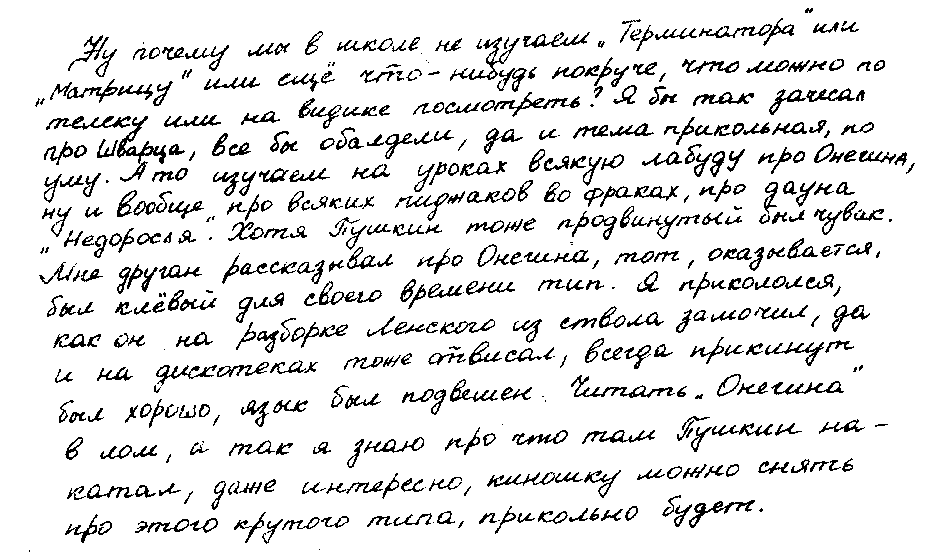 Ну почему мы в школе не изучаем „Терминатора" или
„Матрицу" или ещё что-нибудь покруче, что можно по
телеку или на видике посмотреть? Я бы так зачесал
про Шварца, все бы обалдели, да и тема прикольная, по
уму. А то изучаем на уроках всякую лабуду про Онегина,
ну и вообще про всяких пиджаков во фраках, про дауна
„Недоросля". Хотя Пушкин тоже продвинутый был чувак.
Мне друган рассказывал про Онегина, тот, оказывается,
был клёвый для своего времени тип. Я прикололся,
как он на разборке Ленского из ствола замочил, да
и на дискотеках тоже отвисал, всегда прикинут
был хорошо, язык был подвешен. Читать „Онегина"
в лом, а так я знаю про что там Пушкин на-
катал, даже интересно, киношку можно снять
про этого крутого типа, прикольно будет.